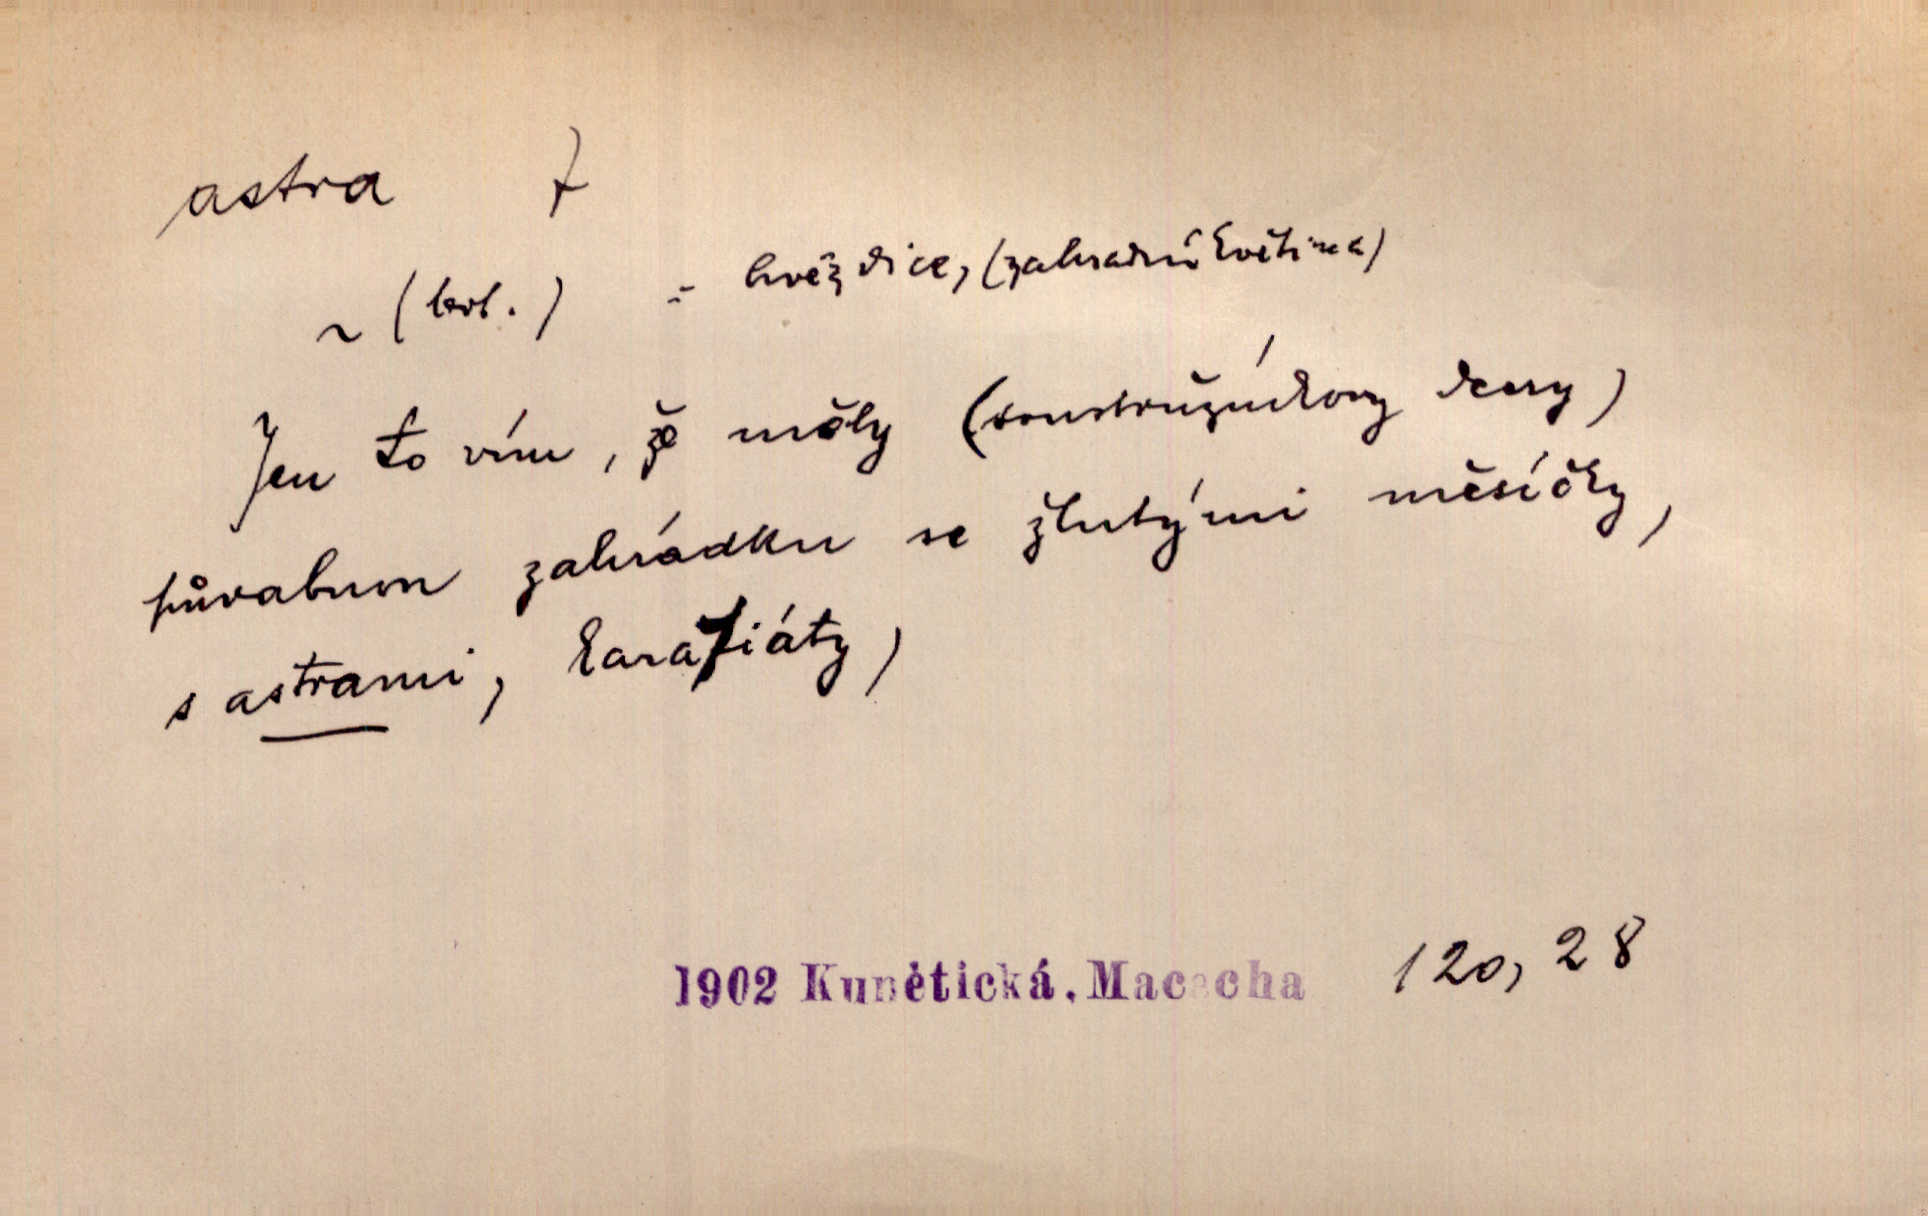 astra f
~ (bot.) = hvězdice, (zahradní květina)
Jen to vím, že měly (soustružníkovy dcery)
půvabnou zahrádku se žlutými měsíčky,
s astrami, karafiáty,
1902 Kunětická, Macecha 120, 28